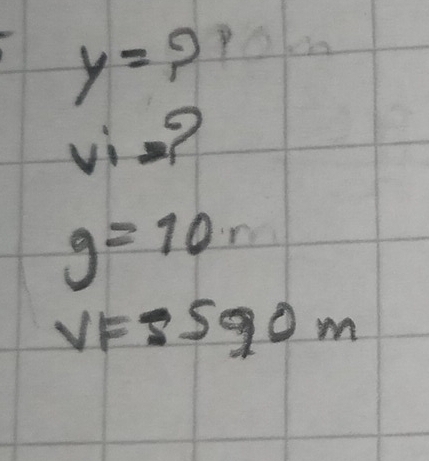 y = ?
vi = ?
g = 10 m
VF = 590 m